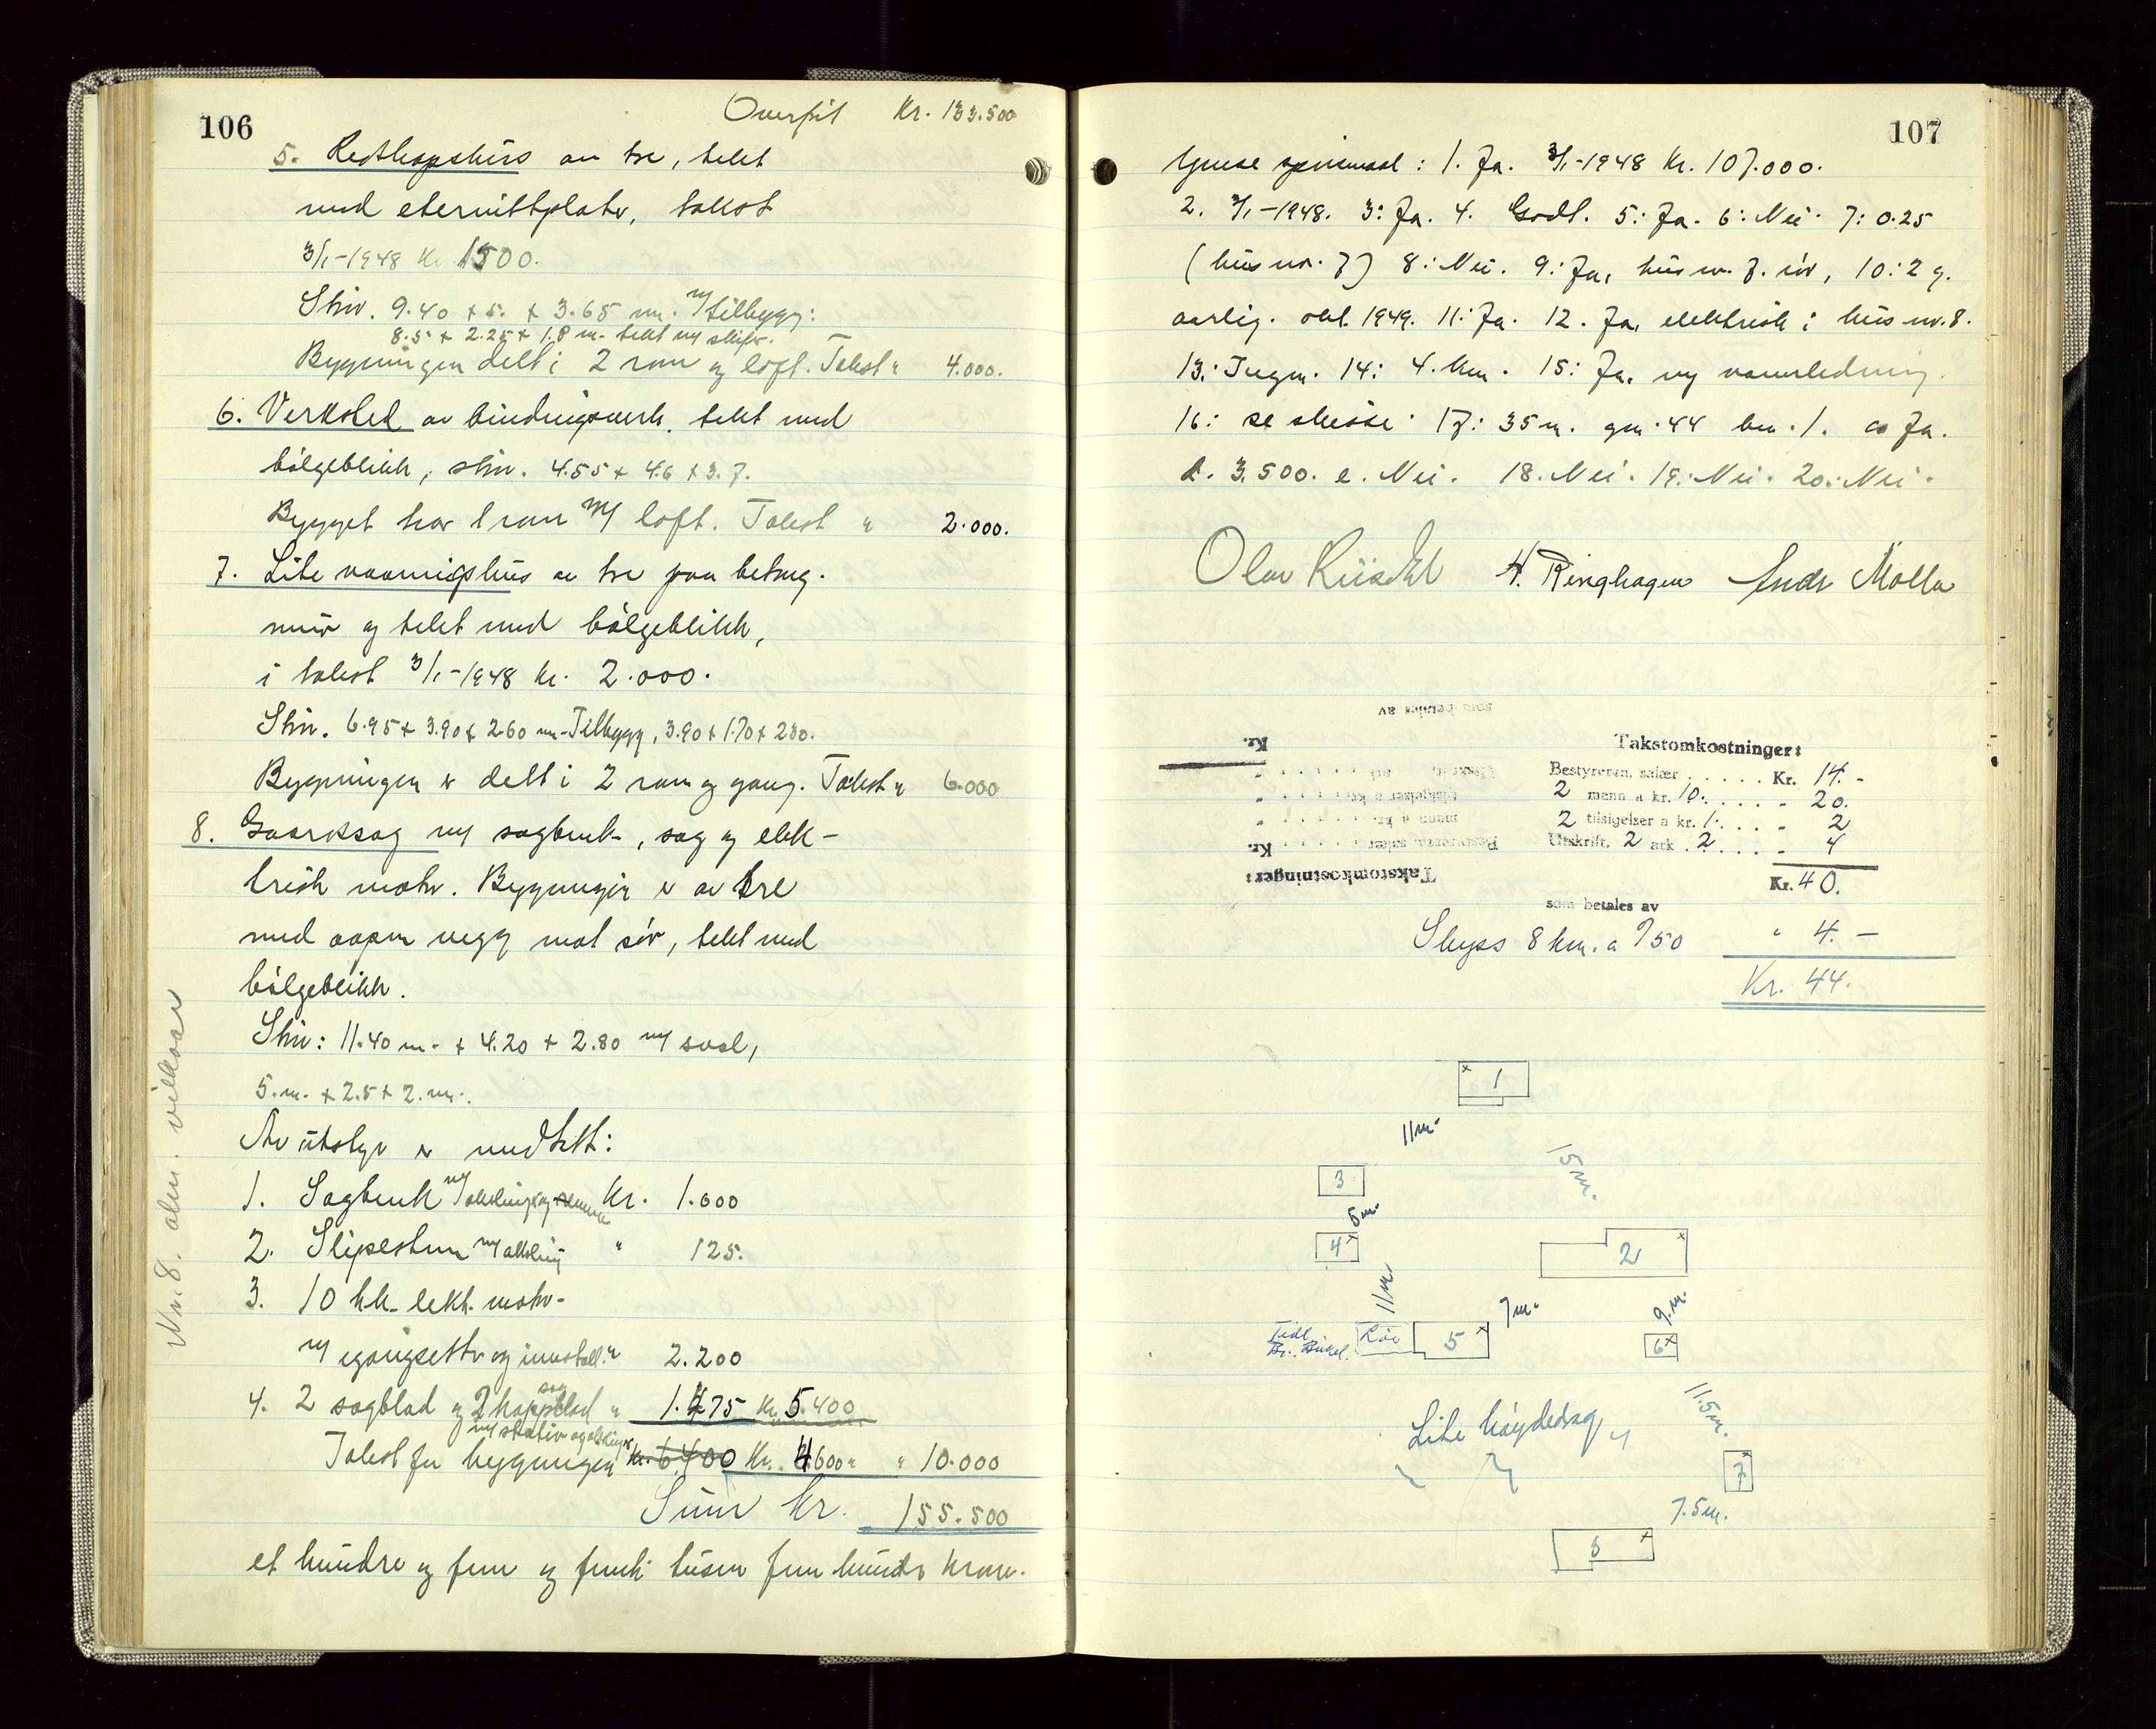 106
Overført Kr. 133.500
5. Redskapshus av tre, tekt
med eternittplater, takst
3/1-1948 Kr. 1500.
Stør. 9.40 + 5. + 3.65 m. m/tilbygg:
8.5 + 2.25 + 1.8 m. tekt m/ skifer.
Bygningen delt i 2 rom og loft. Takst " 4.000.
6. Verksted av bindingsverk, tekt med
bølgeblikk, stør. 4.55 + 4.6 + 3.7.
Bygget har 1 rom m/ loft. Takst " 2.000.
7. Lite vaaningshus av tre paa betong-
mur og tekt med bølgeblikk,
i takst 3/1-1948 kr. 2.000.
Stør. 6.95 + 3.90 + 2.60 m. Tilbygg, 3.90 + 1.70 + 230.
Bygningen er delt i 2 rom og gang. Takst " 6.000
8. Gaardssag m/ sagbenk, sag og elek-
trisk motor. Bygningen er av tre
med aapen vegg mot sør, tekt med
bølgeblikk.
Stør: 11.40 m. + 4.20 + 2.80 m/ sval,
5.m. + 2.5 + 2.m.
Av utstyr er medtatt:
1. Sagbenk m/ Kr. 1.600
2. Slipesten m/ aksling " 125.
3. 10 hk. lekt. motor
m/ igangsetter og innstall. " 2.200
4. 2 sagblad og 2 kappsagblad " 1.475 Kr. 5.400
m/ stativ og aksling
Takst for bygningen Kr. 6400 Kr. 4600 " " 10.000
Sum kr. 155.500
et hundre og fem og femti tusen fem hundre kroner.
Nr. 8. alm. vilkaar
107
Ymse spørsmaal: 1. Ja. 3/1-1948 Kr. 107.000.
2. 3/1-1948. 3: Ja. 4. Godt. 5: Ja. 6: Nei. 7: 0.25
(hus nr. 7) 8: Nei. 9: Ja, hus nr. 7. sør, 10: 2 g.
aarlig. okt. 1949. 11: Ja. 12. Ja, elektrisk i hus nr. 8.
13: Ingen. 14: 4. km. 15: Ja. ny vannledning.
16: se skisse. 17: 35 m. gnr. 44 bnr. 1. a Ja.
d. 3.500. e. Nei. 18. Nei. 19: Nei. 20: Nei.
H. Ringhagen
som betales av
Kr.
Takstomkostninger:
Bestyreren, salær . . . . . Kr. 14.-
2 menn a kr. 10. . . . . - 20.
2 tilsigelser a kr. 1. . . . - 2
Utskrift, 2 ark . 2 . . . . - 4
Kr. 40.
som betales av
Takstomkostninger:
Bestyreren, salær Kr.
menn a kr.
tilsigelser a kr.
Skyss 8 km. a 0/50 " 4.-
Kr. 44.
1
11m.
15m.
3
5m.
4
2
11m
7m.
9.m.
Tidl.
5
6
11.5m.
Lite høydedrag
7
7.5m.
8